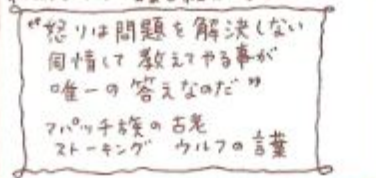 “怒りは問題を解決しない
同情して教えてやる事が
唯一の答えなのだ”
アパッチ族の古老
ストーキング ウルフの言葉